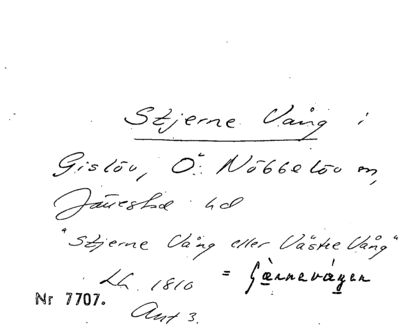 Stjerne Vång i
Gislöv, Ö. Nöbbelöv sn,
Järrestad hd
"Stjerne Vång eller Västre Vång"
Lh. 1810 = Gärnnavången
Nr 7707. Akt 3.